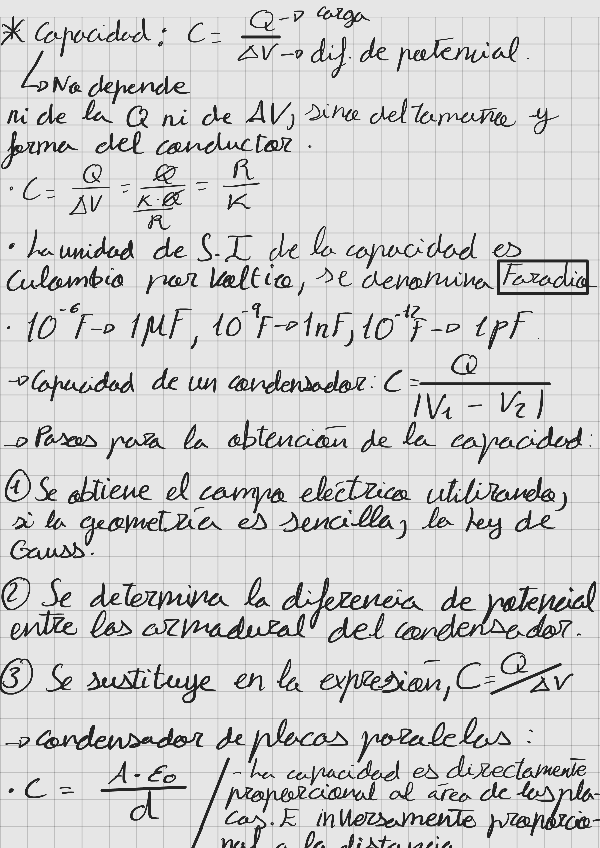 * Capacidad: C = Q → carga
ΔV → dif. de potencial.
↳ No depende
ni de la Q ni de ΔV, sino del tamaño y
forma del conductor.
· C = Q/ΔV = Q/(K·Q/R) = R/K
· La unidad de S.I de la capacidad es
Culombio por Voltio, se denomina Faradio
· 10^-6 F → 1μF, 10^-9 F → 1nF, 10^-12 F → 1pF
→ Capacidad de un condensador: C = Q/|V1 - V2|
→ Pasos para la obtención de la capacidad:
① Se obtiene el campo eléctrico utilizando,
si la geometría es sencilla, la Ley de
Gauss.
② Se determina la diferencia de potencial
entre las armadural del condensador.
③ Se sustituye en la expresión, C = Q/ΔV
→ Condensador de placas paralelas:
· C = A·ε0/d
- La capacidad es directamente
proporcional al área de las pla-
cas. E inversamente proporcio-
nal a la distancia